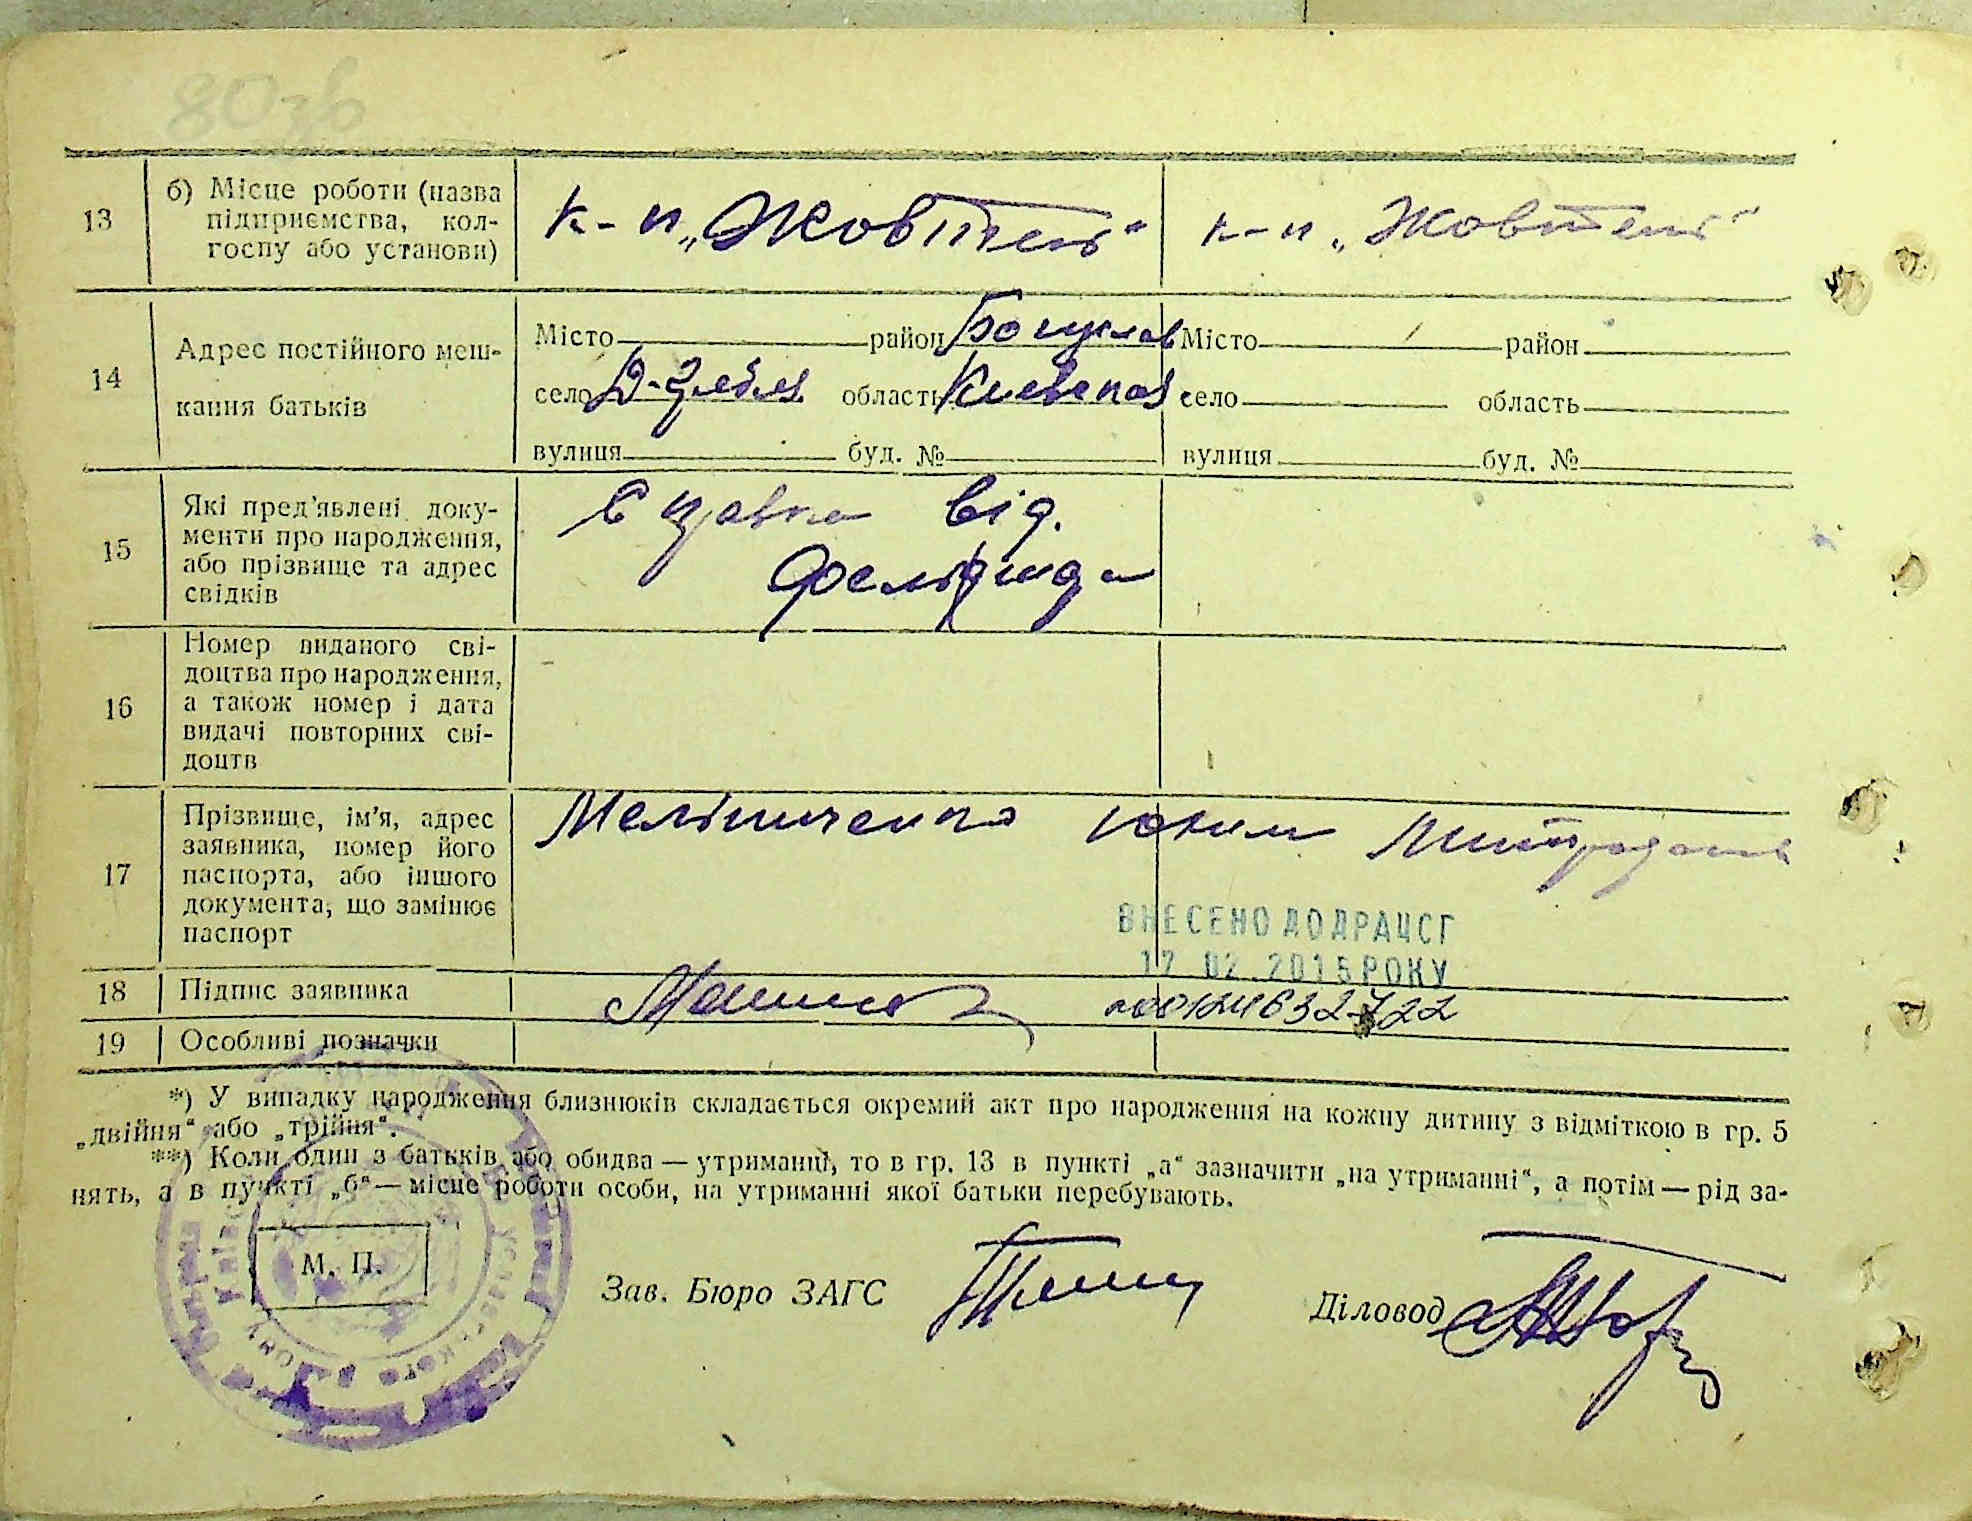 80зв
13
б) Місце роботи (назва
підприємства, кол-
госпу або установи)
к-п „Жовтень“
к-п „Жовтень“
14
Адрес постійного меш-
кання батьків
Місто район Богуслав
село область Киевская
вулиця буд. №
Місто район
село область
вулиця буд. №
15
Які пред'явлені доку-
менти про народження,
або прізвище та адрес
свідків
Є
від.
16
Номер виданого сві-
доцтва про народження,
а також номер і дата
видачі повторних сві-
доцтв
17
Прізвище, ім'я, адрес
заявника, номер його
паспорта, або іншого
документа, що замінює
паспорт
Мельниченко Юхим
ВНЕСЕНО ДО ДРАЦСГ
17 02 2015 РОКУ
18
Підпис заявника
00124632722
19
Особливі позначки
*) У випадку народження близнюків складається окремий акт про народження на кожну дитину з відміткою в гр. 5
„двійня“ або „трійня“.
**) Коли один з батьків або обидва — утриманці, то в гр. 13 в пункті „а“ зазначити „на утриманні“, а потім — рід за-
нять, а в пункті „б“ — місце роботи особи, на утриманні якої батьки перебувають.
М. П.
Зав. Бюро ЗАГС
Діловод